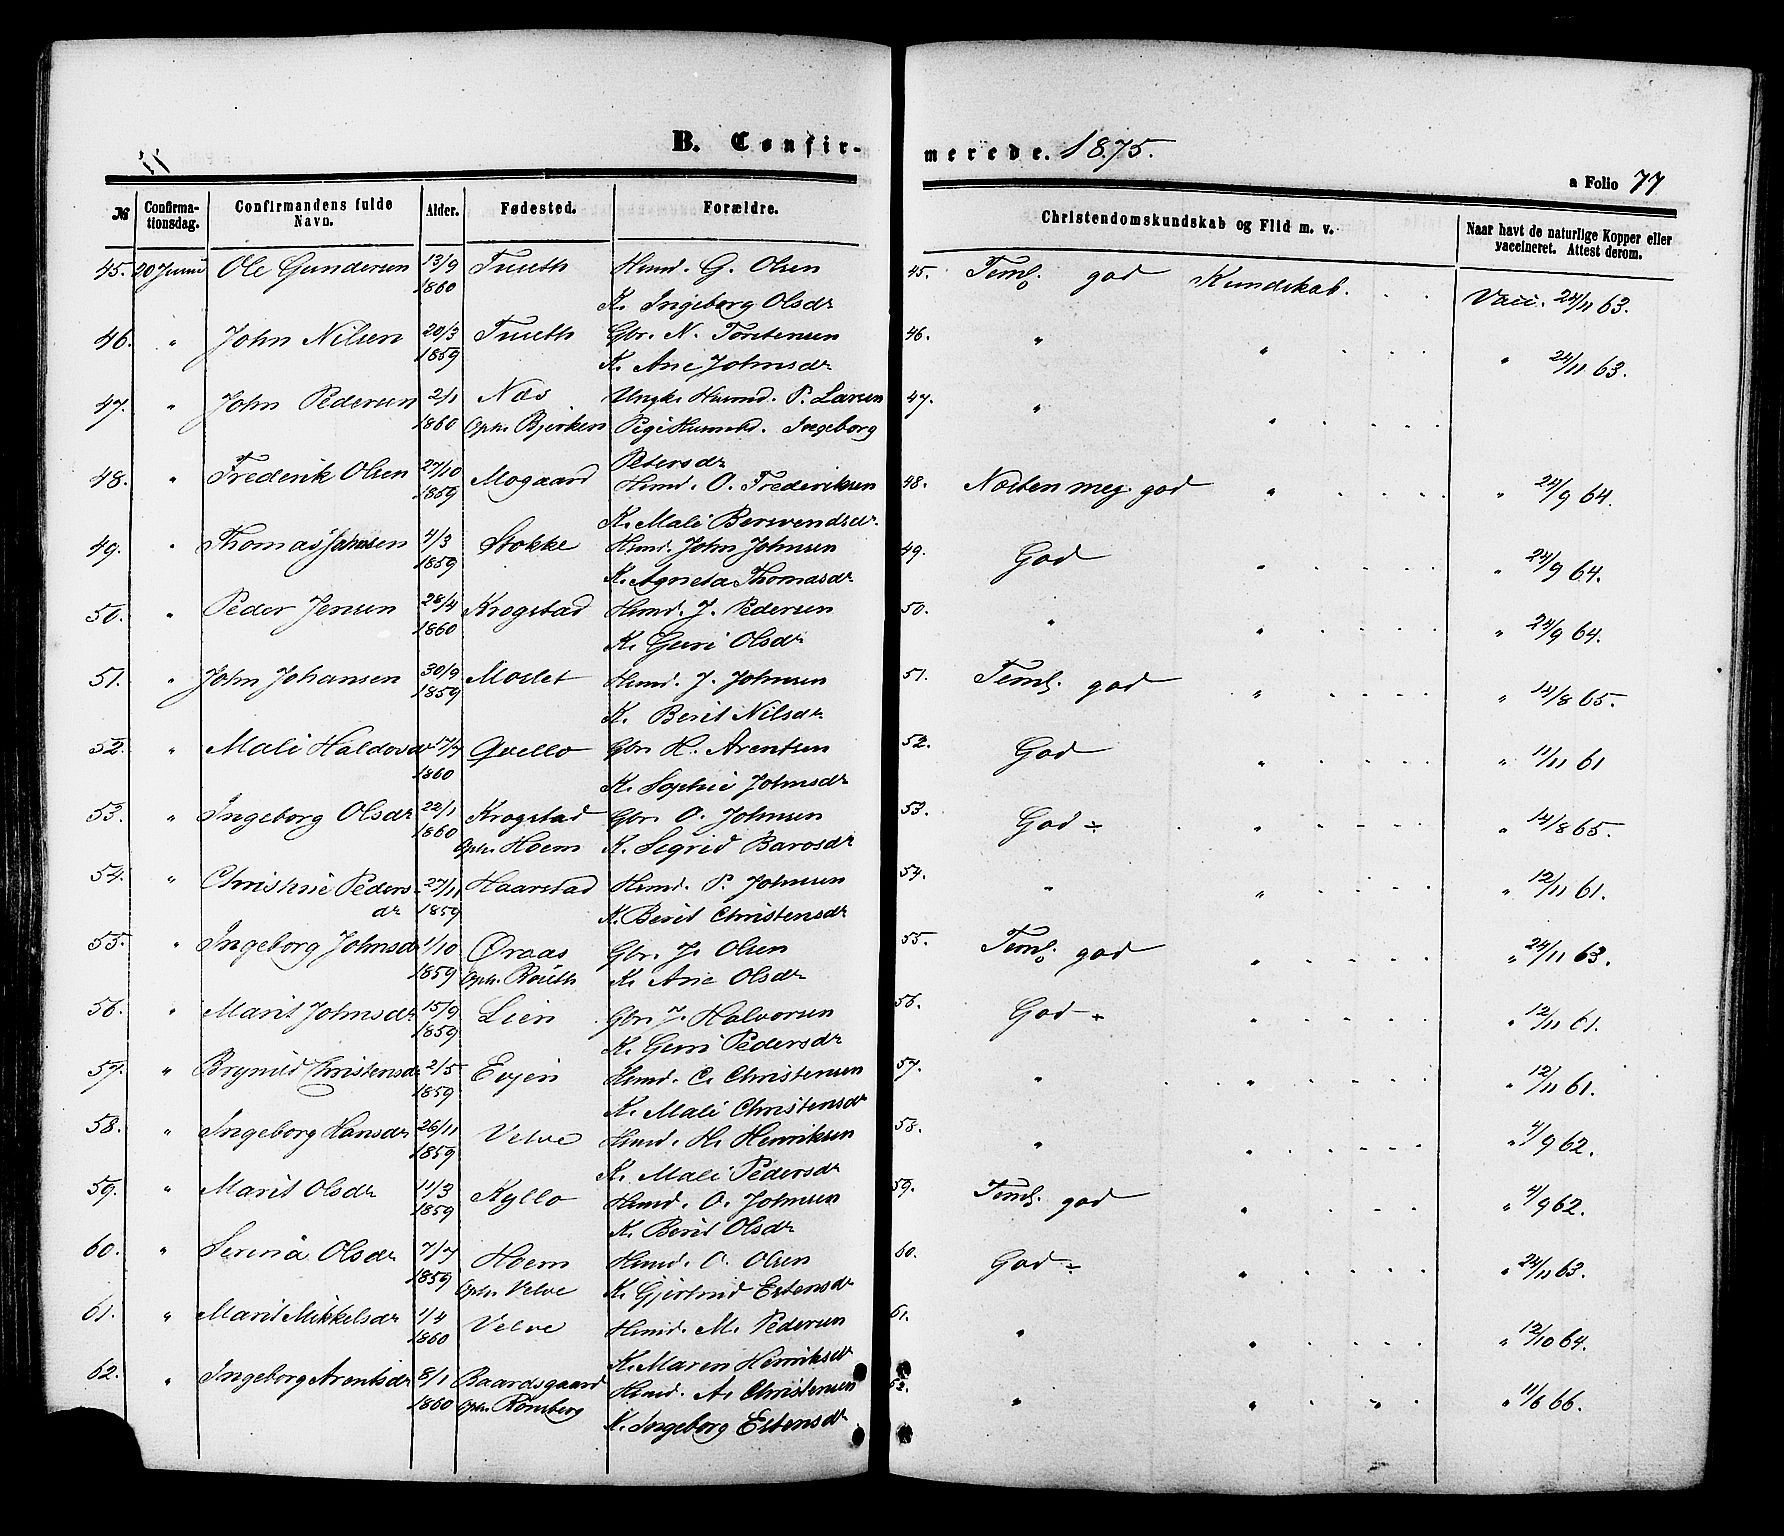 B. Confirmerede. 1875.
a Folio 77
№ Confirmationsdag. Confirmandens fulde Navn. Alder. Fødested. Forældre. Christendomskundskab og Flid m. v. Naar havt de naturlige Kopper eller vaccineret. Attest derom.
45. 20 Juni Ole Gundersen 13/9 1860 Tueth Huusmd. G. Olsen 45. Teml. god Kundskab. Vacc. 24/11 63.
K. Ingeborg Olsdr
46. " John Nilsen 20/3 1859 Tueth Gbr. N. Torstensen 46. " " " 24/11 63.
K. Ane Johnsdr
47. " John Pedersen 2/1 1860 Næs Ungk. Huusmd. P. Larsen 47. " "
Oph. Bjerken Pige Ingeborg
Petersdr
48. " Frederik Olsen 27/10 1859 Mogaard Husmd. O. Frederiksen 48. Næsten meg. god " " 24/9 64.
K. Mali
49. " Thomas Johnsen 4/3 1859 Stokke Husmd. John Johnsen 49. God " " 24/9 64.
K. Agneta Thomasdr
50. " Peder Jensen 28/4 1860 Krogstad Husmd. J. Pedersen 50. " " " 24/9 64.
K. Guri Olsdr
51. " John Johansen 30/9 1859 Moslet Husmd. J. Johnsen 51. Teml. god " " 14/8 65.
K. Berit Nilsdr
52. " Mali Haldorsdr 17/7 1860 Qvello Gbr. H. Arentsen 52. God " " 11/11 61
K. Sophie Johnsdr
53. " Ingeborg Olsdr 22/1 1860 Krogstad Gbr. O. Johnsen 53. God ÷ " " 14/8 65.
Oph. Hoem K. Sigrid Barosdr
54. " Christine Pedersdr 27/11 1859 Haarstad Husmd. P. Johnsen 54. " " " 12/11 61.
K. Berit Christensdr
55. " Ingeborg Johnsdr 1/10 1859 Øraas Gbr. J. Olsen 55. Teml. god " " 24/11 63.
Oph. Röuth K. Ane Olsdr
56. " Marit Johnsdr 15/9 1859 Lien Gbr. J. Halvorsen 56. God ÷ " " 12/11 61.
K. Guri Pedersdr
57. " Brynild Christensdr 2/5 1859 Evjen Husmd. C. Christensen 57. " " " 12/11 61.
K. Mali Christensdr
58. " Ingeborg Hansdr 26/11 1859 Velve Husmd. H. Henriksen 58. " " " 4/9 62.
K. Mali Pedersdr
59. " Marit Olsdr 11/3 1859 Kyllo Husmd. O. Johnsen 59. Teml. god " " 4/9 62.
K. Berit Olsdr
60. " Serina Olsdr 7/7 1859 Hoem Husmd. O. Olsen 60. God ÷ " " 24/11 63.
Oph. Velve K. Gjertrud Estensdr
61. " Marit Mikkelsdr 1/4 1860 Velve Husmd. M. Pedersen 61. " " " 12/10 64.
K. Maren Henriksdr
62. " Ingeborg Arentsdr 8/1 1860 Baardsgaard Husmd. A. Christensen 62. " " " 11/6 66.
Oph. Rönsberg K. Ingeborg Estensdr